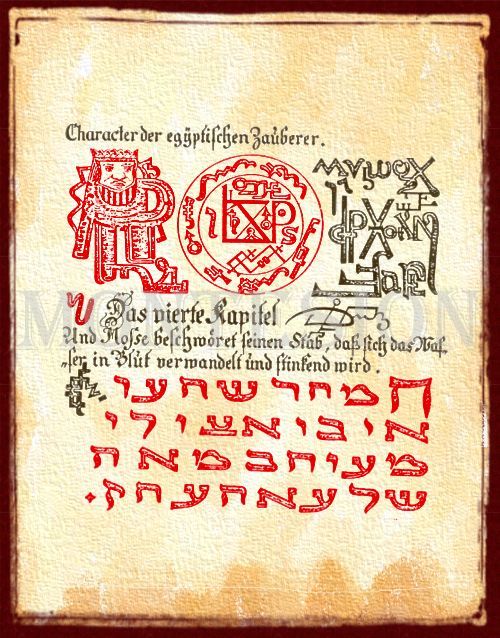 Character der egÿptiſchen Zaüberer.
Das vierte Kapitel
Und Moſſe beſchwöret ſeinen Stab, daß ſich das Waſ
„ſer in Blüt verwandelt ünd ſtinkend wird.
חמחר שחעי
איבי אצילי
מעיחבמאה
שלעאחעחז.